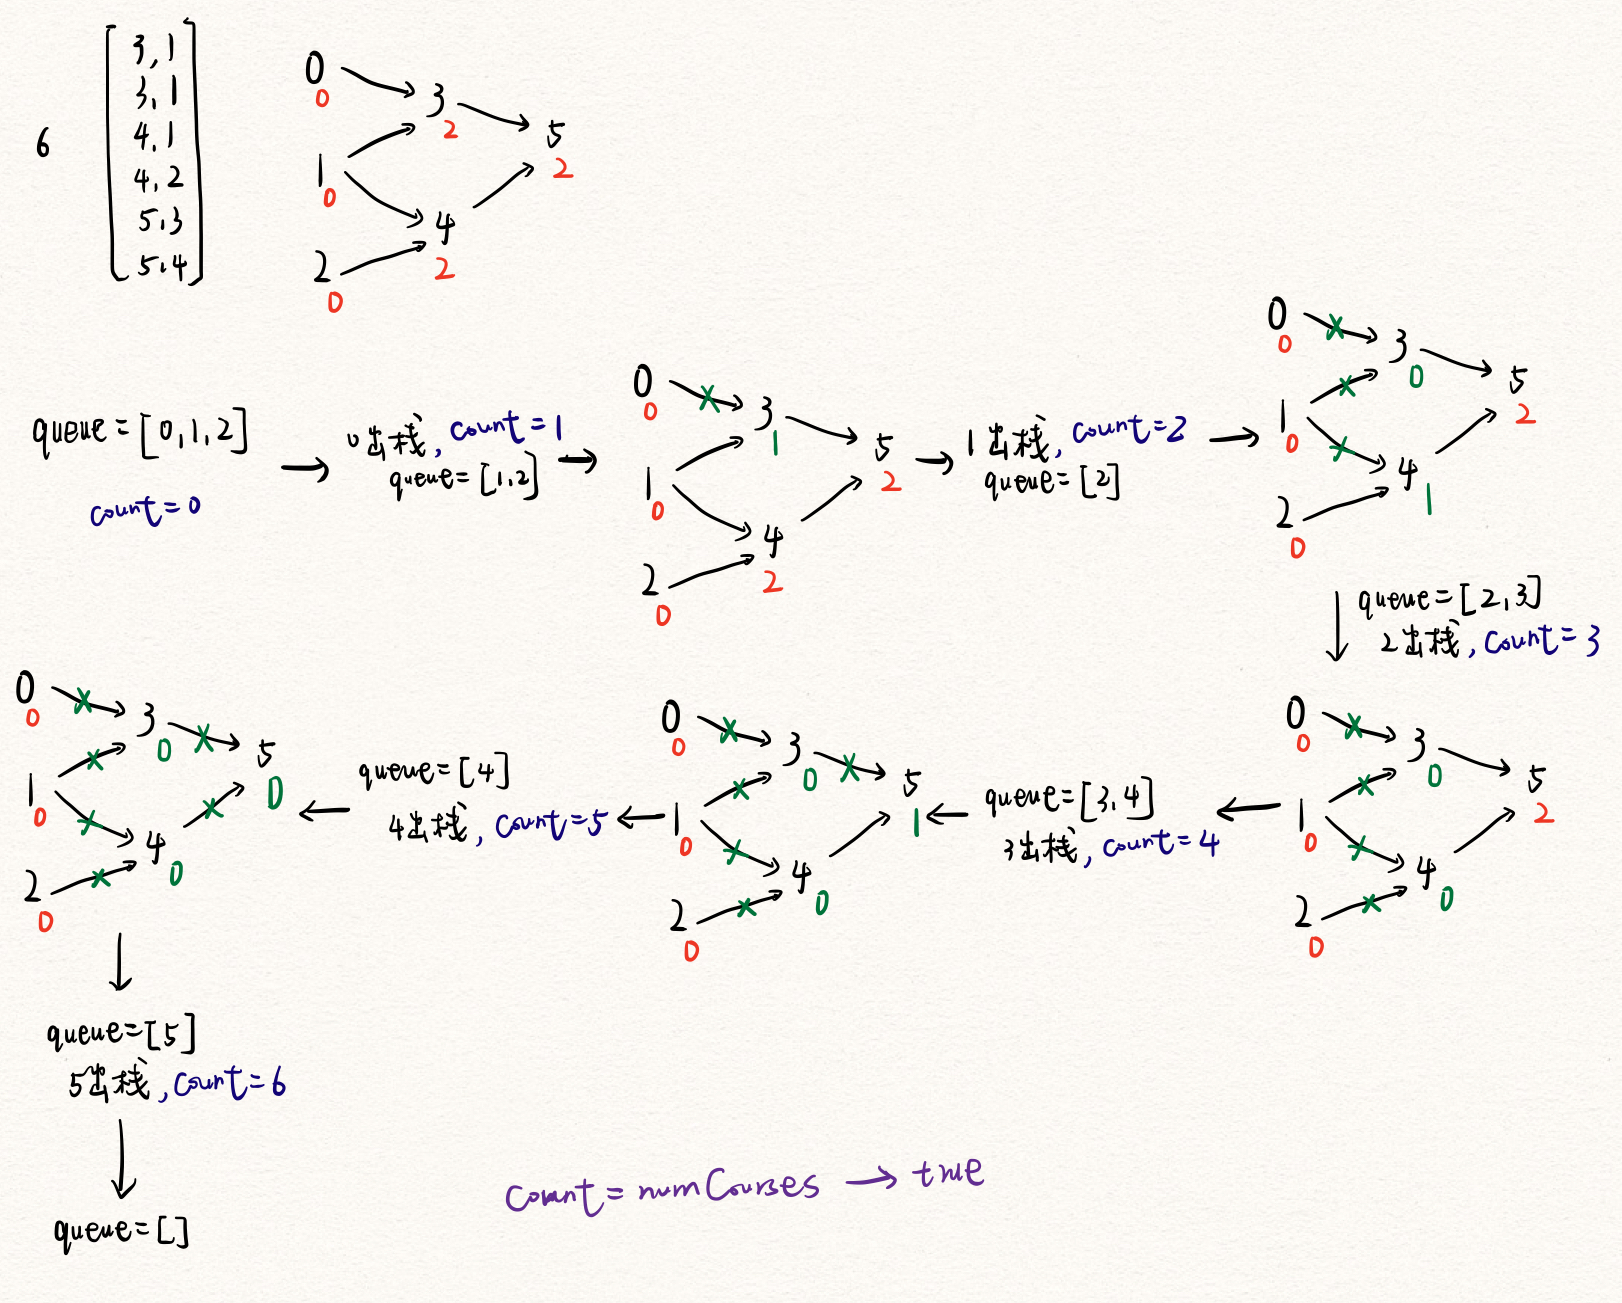 6
3,1
3,1
4,1
4,2
5,3
5,4
0
0
3
2
5
2
1
0
4
2
2
0
queue=[0,1,2]
count=0
0出栈,count=1
queue=[1,2]
0
0
3
1
5
2
1
0
4
2
2
0
1出栈,count=2
queue=[2]
0
0
3
0
5
2
1
0
4
1
2
0
queue=[2,3]
2出栈,count=3
0
0
3
0
5
2
1
0
4
0
2
0
queue=[3,4]
3出栈,count=4
0
0
3
0
5
1
1
0
4
0
2
0
queue=[4]
4出栈,count=5
0
0
3
0
5
0
1
0
4
0
2
0
queue=[5]
5出栈,count=6
queue=[]
count=numCourses→true